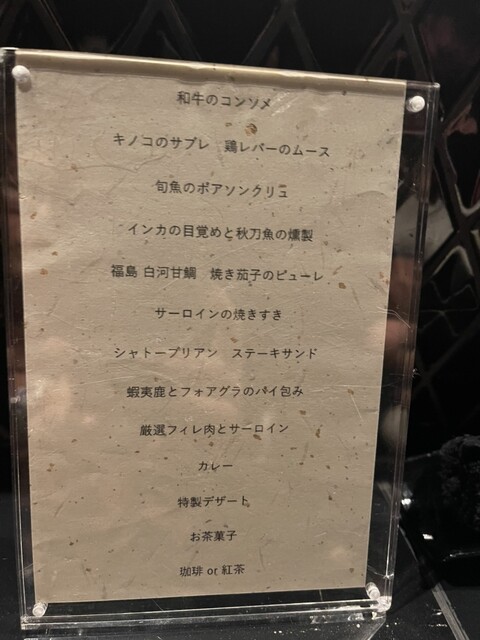 和牛のコンソメ
キノコのサブレ　鶏レバーのムース
旬魚のポアソンクリュ
インカの目覚めと秋刀魚の燻製
福島 白河甘鯛　焼き茄子のピューレ
サーロインの焼きすき
シャトーブリアン　ステーキサンド
蝦夷鹿とフォアグラのパイ包み
厳選フィレ肉とサーロイン
カレー
特製デザート
お茶菓子
珈琲 or 紅茶